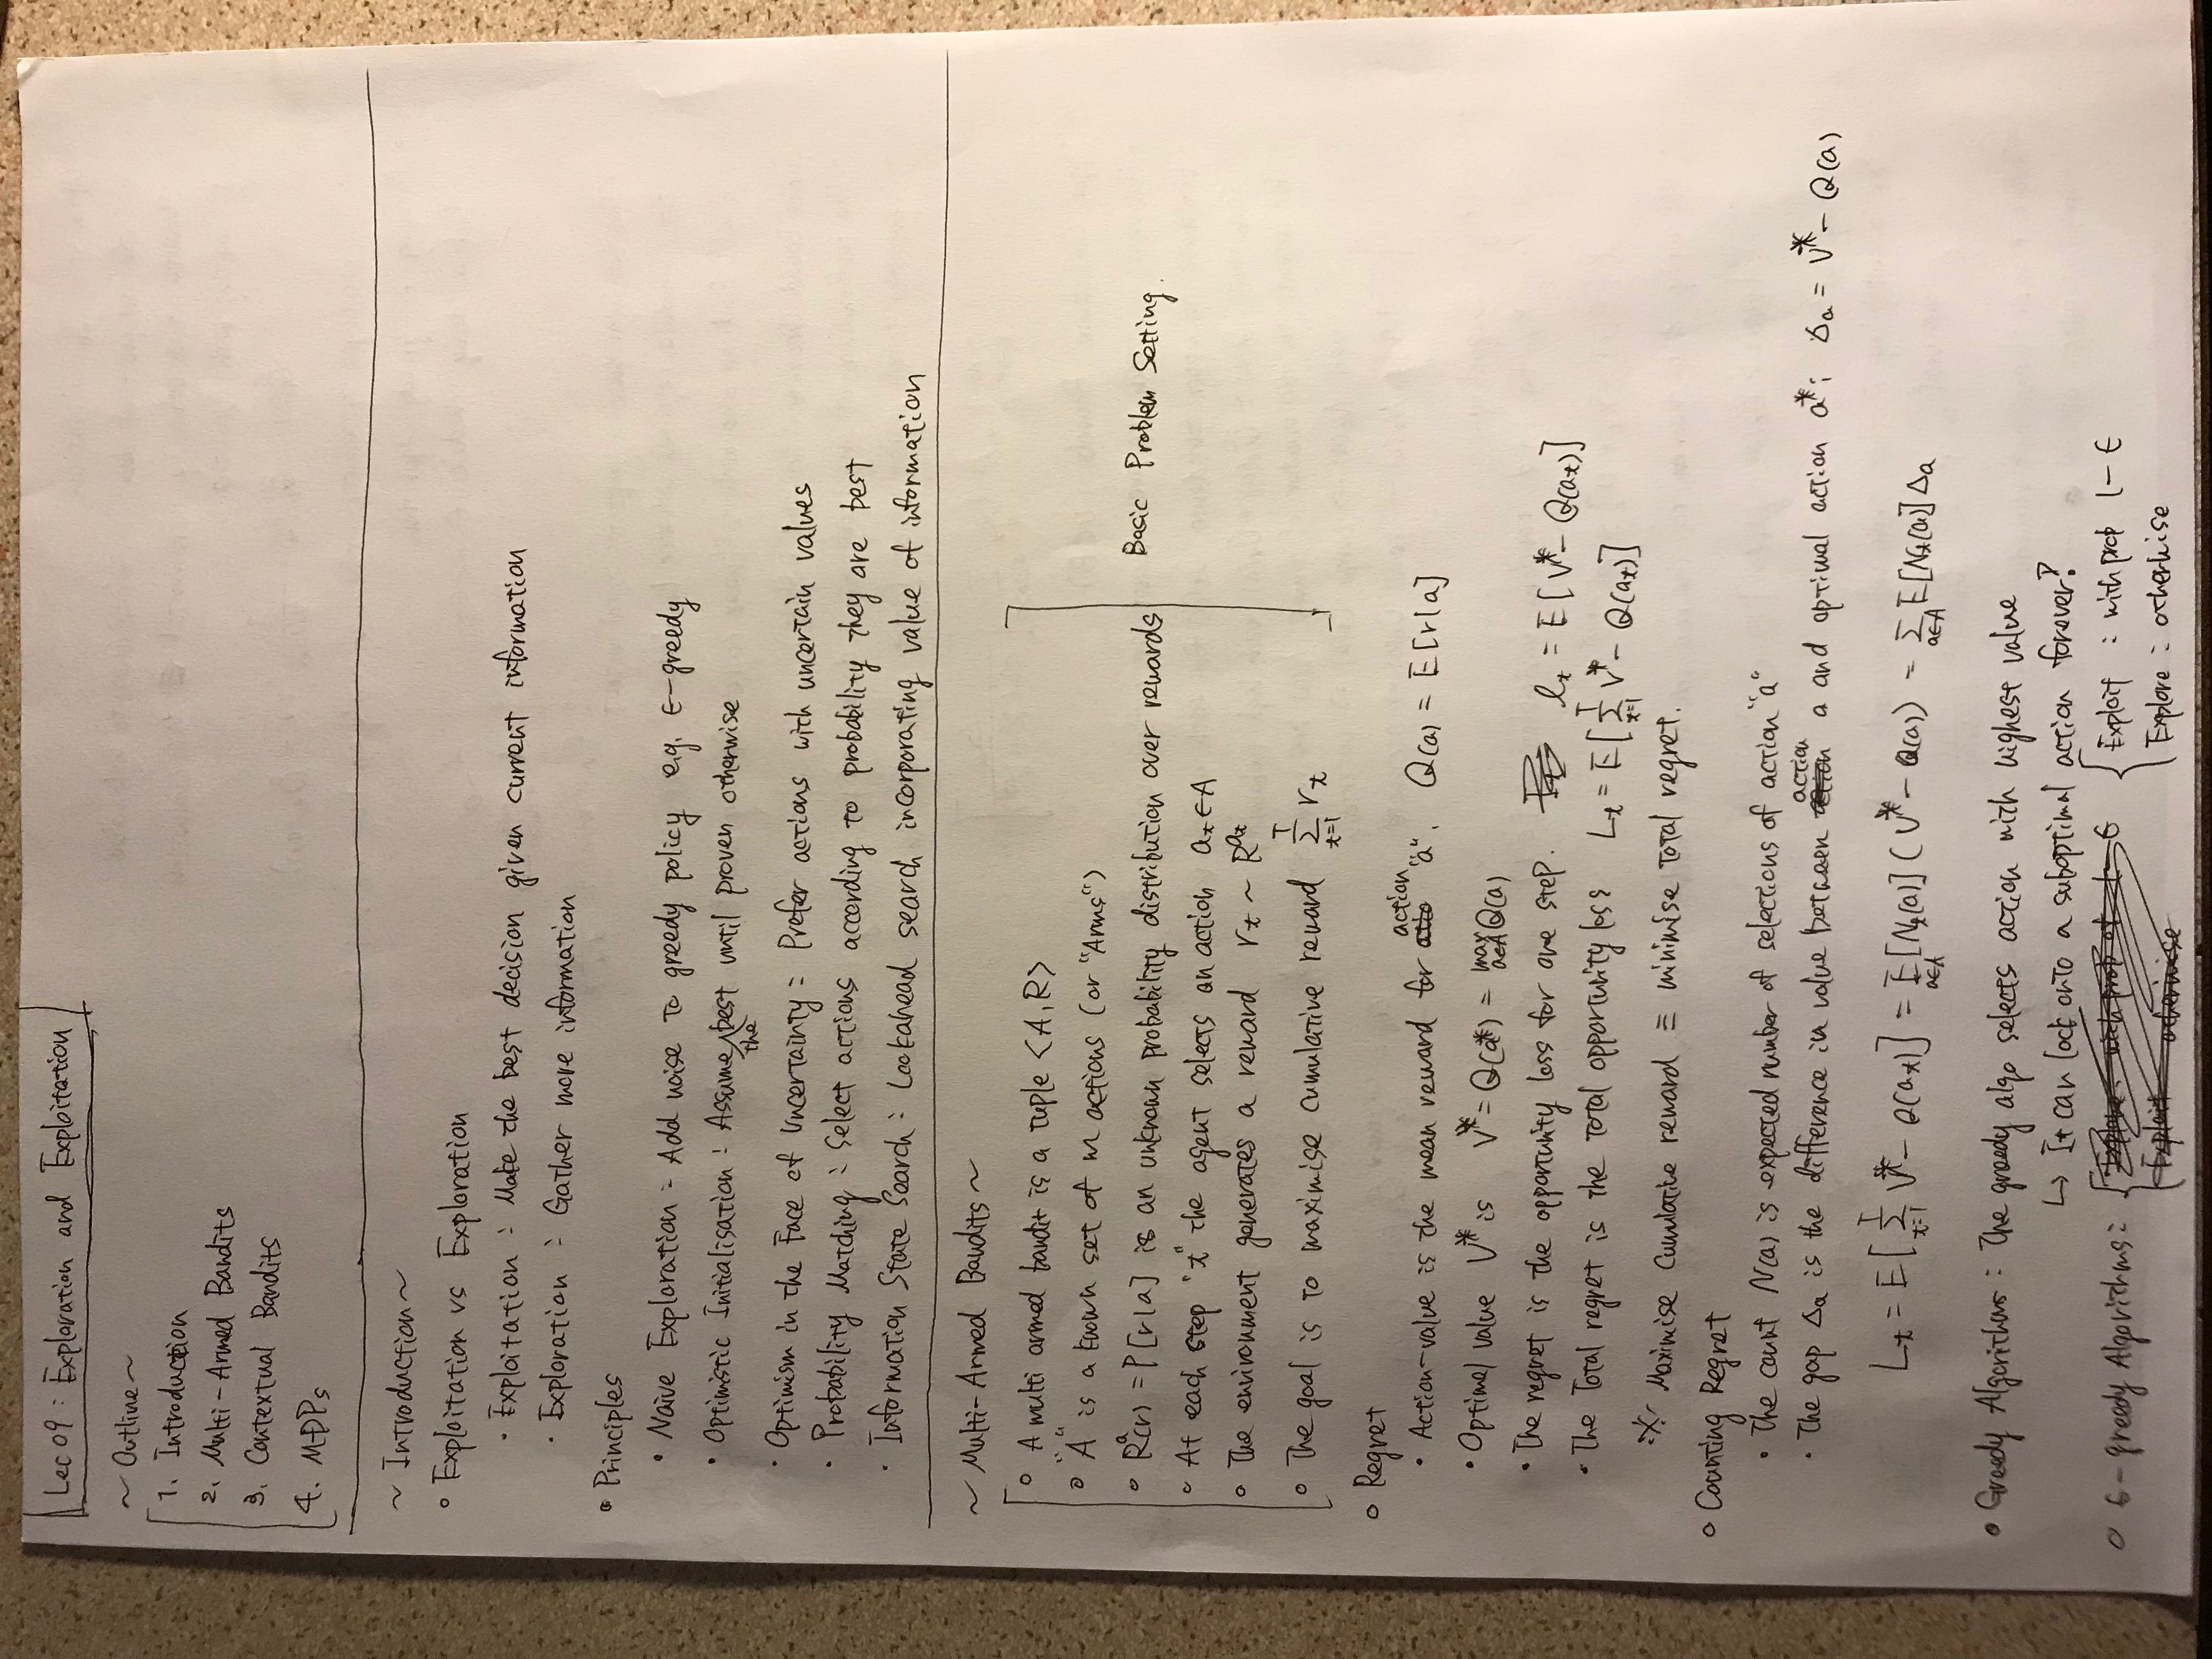 Lec 09 : Exploration and Exploitation
~ Outline ~
1. Introduction
2. Multi-Armed Bandits
3. Contextual Bandits
4. MDPs
~ Introduction ~
◦ Exploitation vs Exploration
· Exploitation : Make the best decision given current information
· Exploration : Gather more information
◦ Principles
· Naive Exploration : Add noise to greedy policy e.g. ϵ-greedy
· Optimistic Initialisation : Assume the best until proven otherwise
· Optimism in the Face of Uncertainty : Prefer actions with uncertain values
· Probability Matching : Select actions according to probability they are best
· Information State Search : Lookahead search incorporating value of information
~ Multi-Armed Bandits ~
◦ A multi armed bandit is a tuple <A, R>
◦ "A" is a known set of m actions (or "Arms")
◦ R^a(r) = P[r|a] is an unknown probability distribution over rewards
Basic Problem Setting.
◦ At each step "t" the agent selects an action a_t ∈ A
◦ The environment generates a reward r_t ~ R^{a_t}
◦ The goal is to maximise cumulative reward Σ_{t=1}^T r_t
◦ Regret
· Action-value is the mean reward for action "a". Q(a) = E[r|a]
· Optimal value V* is V* = Q(a*) = max_{a∈A} Q(a)
· The regret is the opportunity loss for one step. l_t = E[V* - Q(a_t)]
· The Total regret is the total opportunity loss L_t = E[Σ_{t=1}^T V* - Q(a_t)]
※ Maximise Cumulative reward ≡ minimise total regret.
◦ Counting Regret
· The count N(a) is expected number of selections of action "a"
· The gap Δ_a is the difference in value between action a and optimal action a*; Δ_a = V* - Q(a)
L_t = E[Σ_{t=1}^T V* - Q(a_t)] = E_{a∈A}[N_t(a)](V* - Q(a)) = Σ_{a∈A} E[N_t(a)]Δ_a
• Greedy Algorithms : The greedy algo selects action with highest value
↳ It can lock onto a suboptimal action forever!
◦ ϵ-greedy Algorithms : { Exploit : with prob 1-ϵ
Explore : otherwise